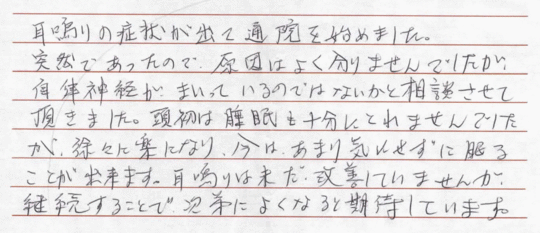 耳鳴りの症状が出て通院を始めました。
突然であったので、原因はよく分りませんでしたが、
自律神経が、まいっているのではないかと相談させて
頂きました。頭初は睡眠も十分にとれませんでした
が、徐々に楽になり、今は、あまり気にせずに眠る
ことが出来ます。耳鳴りは未だ、改善していませんが、
継続することで、次第によくなると期待しています。